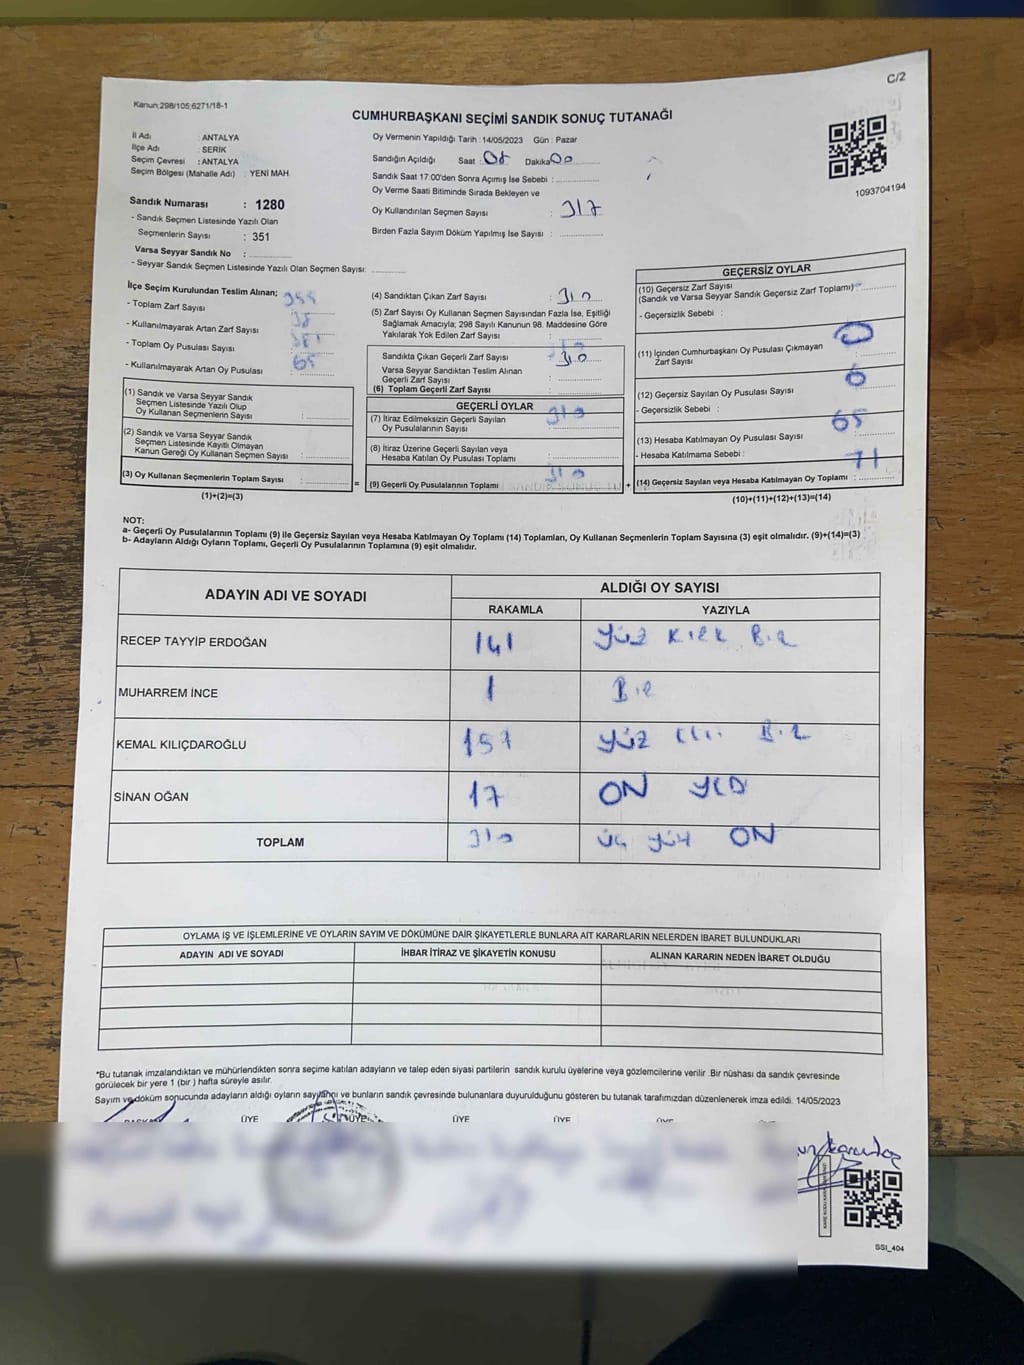 C/2
Kanun;298/105;6271/18-1
CUMHURBAŞKANI SEÇİMİ SANDIK SONUÇ TUTANAĞI
İl Adı : ANTALYA
İlçe Adı : SERİK
Seçim Çevresi : ANTALYA
Seçim Bölgesi (Mahalle Adı) : YENİ MAH.
Oy Vermenin Yapıldığı Tarih : 14/05/2023 Gün : Pazar
Sandığın Açıldığı Saat : 08 Dakika 00
Sandık Saat 17:00'den Sonra Açımış İse Sebebi :
Oy Verme Saati Bitiminde Sırada Bekleyen ve
Oy Kullandırılan Seçmen Sayısı : 317
Birden Fazla Sayım Döküm Yapılmış İse Sayısı :
1093704194
Sandık Numarası : 1280
- Sandık Seçmen Listesinde Yazılı Olan
Seçmenlerin Sayısı : 351
Varsa Seyyar Sandık No :
- Seyyar Sandık Seçmen Listesinde Yazılı Olan Seçmen Sayısı:
İlçe Seçim Kurulundan Teslim Alınan;
- Toplam Zarf Sayısı
- Kullanılmayarak Artan Zarf Sayısı
- Toplam Oy Pusulası Sayısı
- Kullanılmayarak Artan Oy Pusulası : 65
(1) Sandık ve Varsa Seyyar Sandık
Seçmen Listesinde Yazılı Olup
Oy Kullanan Seçmenlerin Sayısı :
(2) Sandık ve Varsa Seyyar Sandık
Seçmen Listesinde Kayıtlı Olmayan
Kanun Gereği Oy Kullanan Seçmen Sayısı :
(3) Oy Kullanan Seçmenlerin Toplam Sayısı :
(1)+(2)=(3)
(4) Sandıktan Çıkan Zarf Sayısı : 310
(5) Zarf Sayısı Oy Kullanan Seçmen Sayısından Fazla İse, Eşitliği
Sağlamak Amacıyla; 298 Sayılı Kanunun 98. Maddesine Göre
Yakılarak Yok Edilen Zarf Sayısı :
Sandıkta Çıkan Geçerli Zarf Sayısı : 310
Varsa Seyyar Sandıktan Teslim Alınan
Geçerli Zarf Sayısı :
(6) Toplam Geçerli Zarf Sayısı :
GEÇERLİ OYLAR
(7) İtiraz Edilmeksizin Geçerli Sayılan
Oy Pusulalarının Sayısı : 310
(8) İtiraz Üzerine Geçerli Sayılan veya
Hesaba Katılan Oy Pusulası Toplamı :
= (9) Geçerli Oy Pusulalarının Toplamı : 310
GEÇERSİZ OYLAR
(10) Geçersiz Zarf Sayısı
(Sandık ve Varsa Seyyar Sandık Geçersiz Zarf Toplamı):
- Geçersizlik Sebebi :
(11) İçinden Cumhurbaşkanı Oy Pusulası Çıkmayan
Zarf Sayısı : 0
(12) Geçersiz Sayılan Oy Pusulası Sayısı : 6
- Geçersizlik Sebebi :
(13) Hesaba Katılmayan Oy Pusulası Sayısı : 65
- Hesaba Katılmama Sebebi :
+ (14) Geçersiz Sayılan veya Hesaba Katılmayan Oy Toplamı : 71
(10)+(11)+(12)+(13)=(14)
NOT:
a- Geçerli Oy Pusulalarının Toplamı (9) ile Geçersiz Sayılan veya Hesaba Katılmayan Oy Toplamı (14) Toplamları, Oy Kullanan Seçmenlerin Toplam Sayısına (3) eşit olmalıdır. (9)+(14)=(3)
b- Adayların Aldığı Oyların Toplamı, Geçerli Oy Pusulalarının Toplamına (9) eşit olmalıdır.
ADAYIN ADI VE SOYADI ALDIĞI OY SAYISI
RAKAMLA YAZIYLA
RECEP TAYYİP ERDOĞAN 141 Yüz KIRK BiR
MUHARREM İNCE 1 BiR
KEMAL KILIÇDAROĞLU 151 Yüz Elli BiR
SİNAN OĞAN 17 ON YEDi
TOPLAM 310 üç yüz ON
OYLAMA İŞ VE İŞLEMLERİNE VE OYLARIN SAYIM VE DÖKÜMÜNE DAİR ŞİKAYETLERLE BUNLARA AİT KARARLARIN NELERDEN İBARET BULUNDUKLARI
ADAYIN ADI VE SOYADI İHBAR İTİRAZ VE ŞİKAYETİN KONUSU ALINAN KARARIN NEDEN İBARET OLDUĞU
*Bu tutanak imzalandıktan ve mühürlendikten sonra seçime katılan adayların ve talep eden siyasi partilerin sandık kurulu üyelerine veya gözlemcilerine verilir .Bir nüshası da sandık çevresinde
görülecek bir yere 1 (bir ) hafta süreyle asılır.
Sayım ve döküm sonucunda adayların aldığı oyların sayılarını ve bunların sandık çevresinde bulunanlara duyurulduğunu gösteren bu tutanak tarafımızdan düzenlenerek imza edildi. 14/05/2023
ÜYE ÜYE ÜYE ÜYE ÜYE
SSI_404